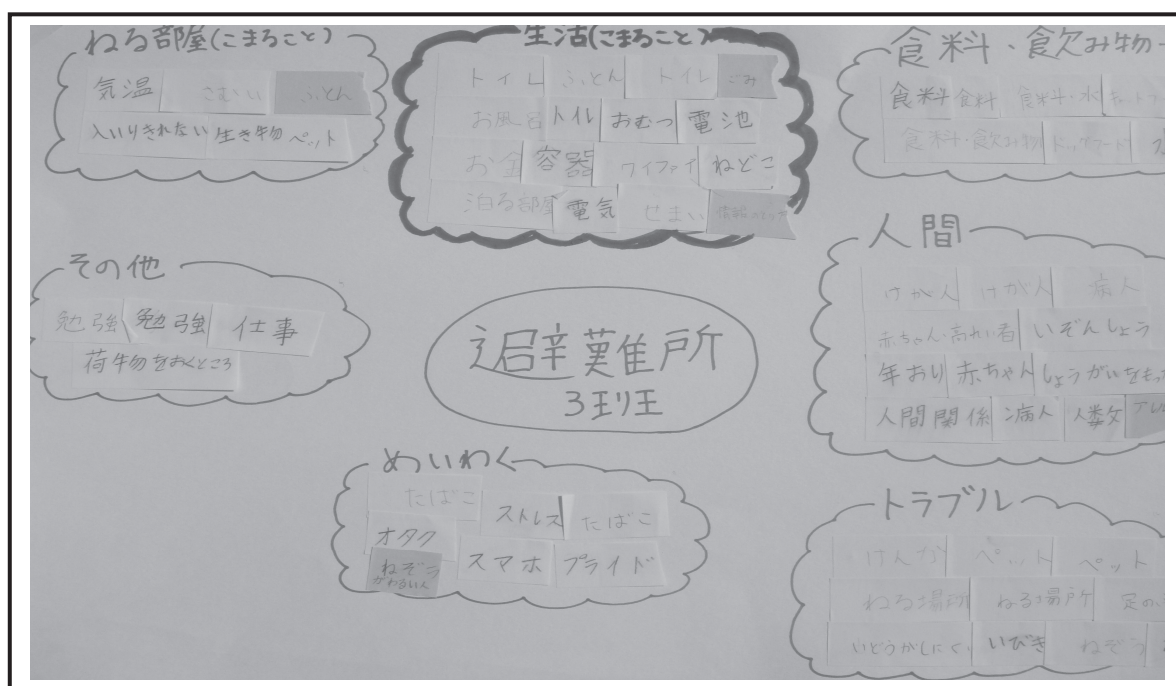 ねる部屋(こまること)
気温 さむい ふとん
入りきれない 生き物 ペット
生活(こまること)
トイレ ふとん トイレ ごみ
お風呂 トイレ おむつ 電池
お金 容器 ワイファイ ねどこ
泊る部屋 電気 せまい
食料・飲み物
食料 食料 食料・水
食料・飲み物 ドッグフード
その他
勉強 勉強 仕事
荷物をおくところ
避難所
3班
人間
けが人 けが人 病人
赤ちゃん・高れい者 いぞんしょう
年おり 赤ちゃん しょうがいをもっ
人間関係 病人 人数 アレ
めいわく
たばこ ストレス たばこ
オタク スマホ プライド
ねぞう
がわるい人
トラブル
けんか ペット ペット
ねる場所 ねる場所 足の
いどうがしにく いびき ねぞう